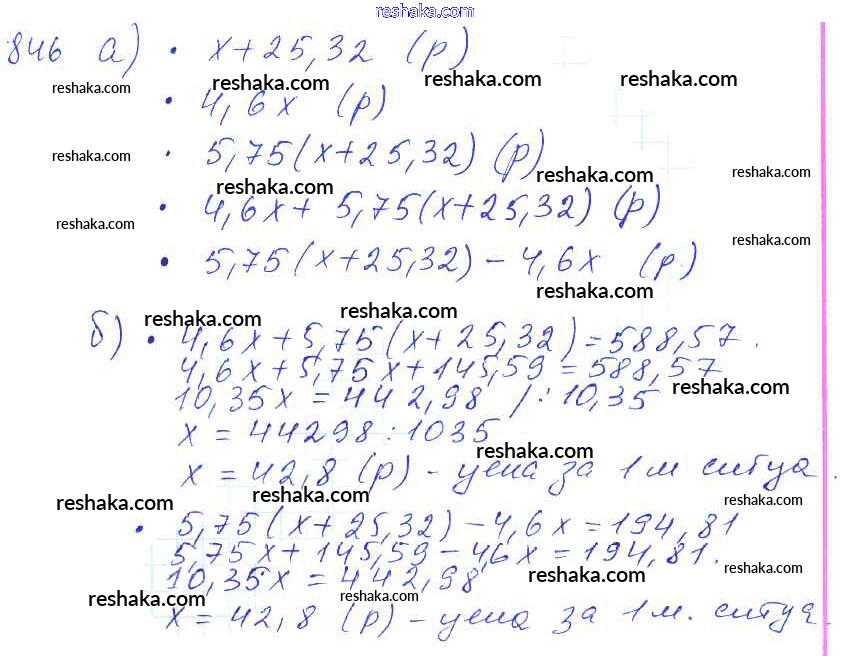 reshaka.com
846 а) • x+25,32 (р)
reshaka.com reshaka.com reshaka.com reshaka.com
• 4,6x (р)
• 5,75(x+25,32) (р)
reshaka.com reshaka.com reshaka.com reshaka.com
• 4,6x+ 5,75(x+25,32) (р)
reshaka.com reshaka.com
• 5,75(x+25,32) – 4,6x (р.)
reshaka.com
reshaka.com reshaka.com
б) • 4,6x+5,75(x+25,32)=588,57.
4,6x+5,75x+145,59=588,57
reshaka.com
10,35x=442,98 /:10,35
x = 44298:1035
reshaka.com
x = 42,8 (р) – цена за 1м ситца.
reshaka.com reshaka.com reshaka.com
• 5,75(x+25,32)–4,6x=194,81
5,75x+145,59–4,6x=194,81.
reshaka.com reshaka.com
10,35x=442,98
reshaka.com reshaka.com
x=42,8 (р) – цена за 1м. ситца